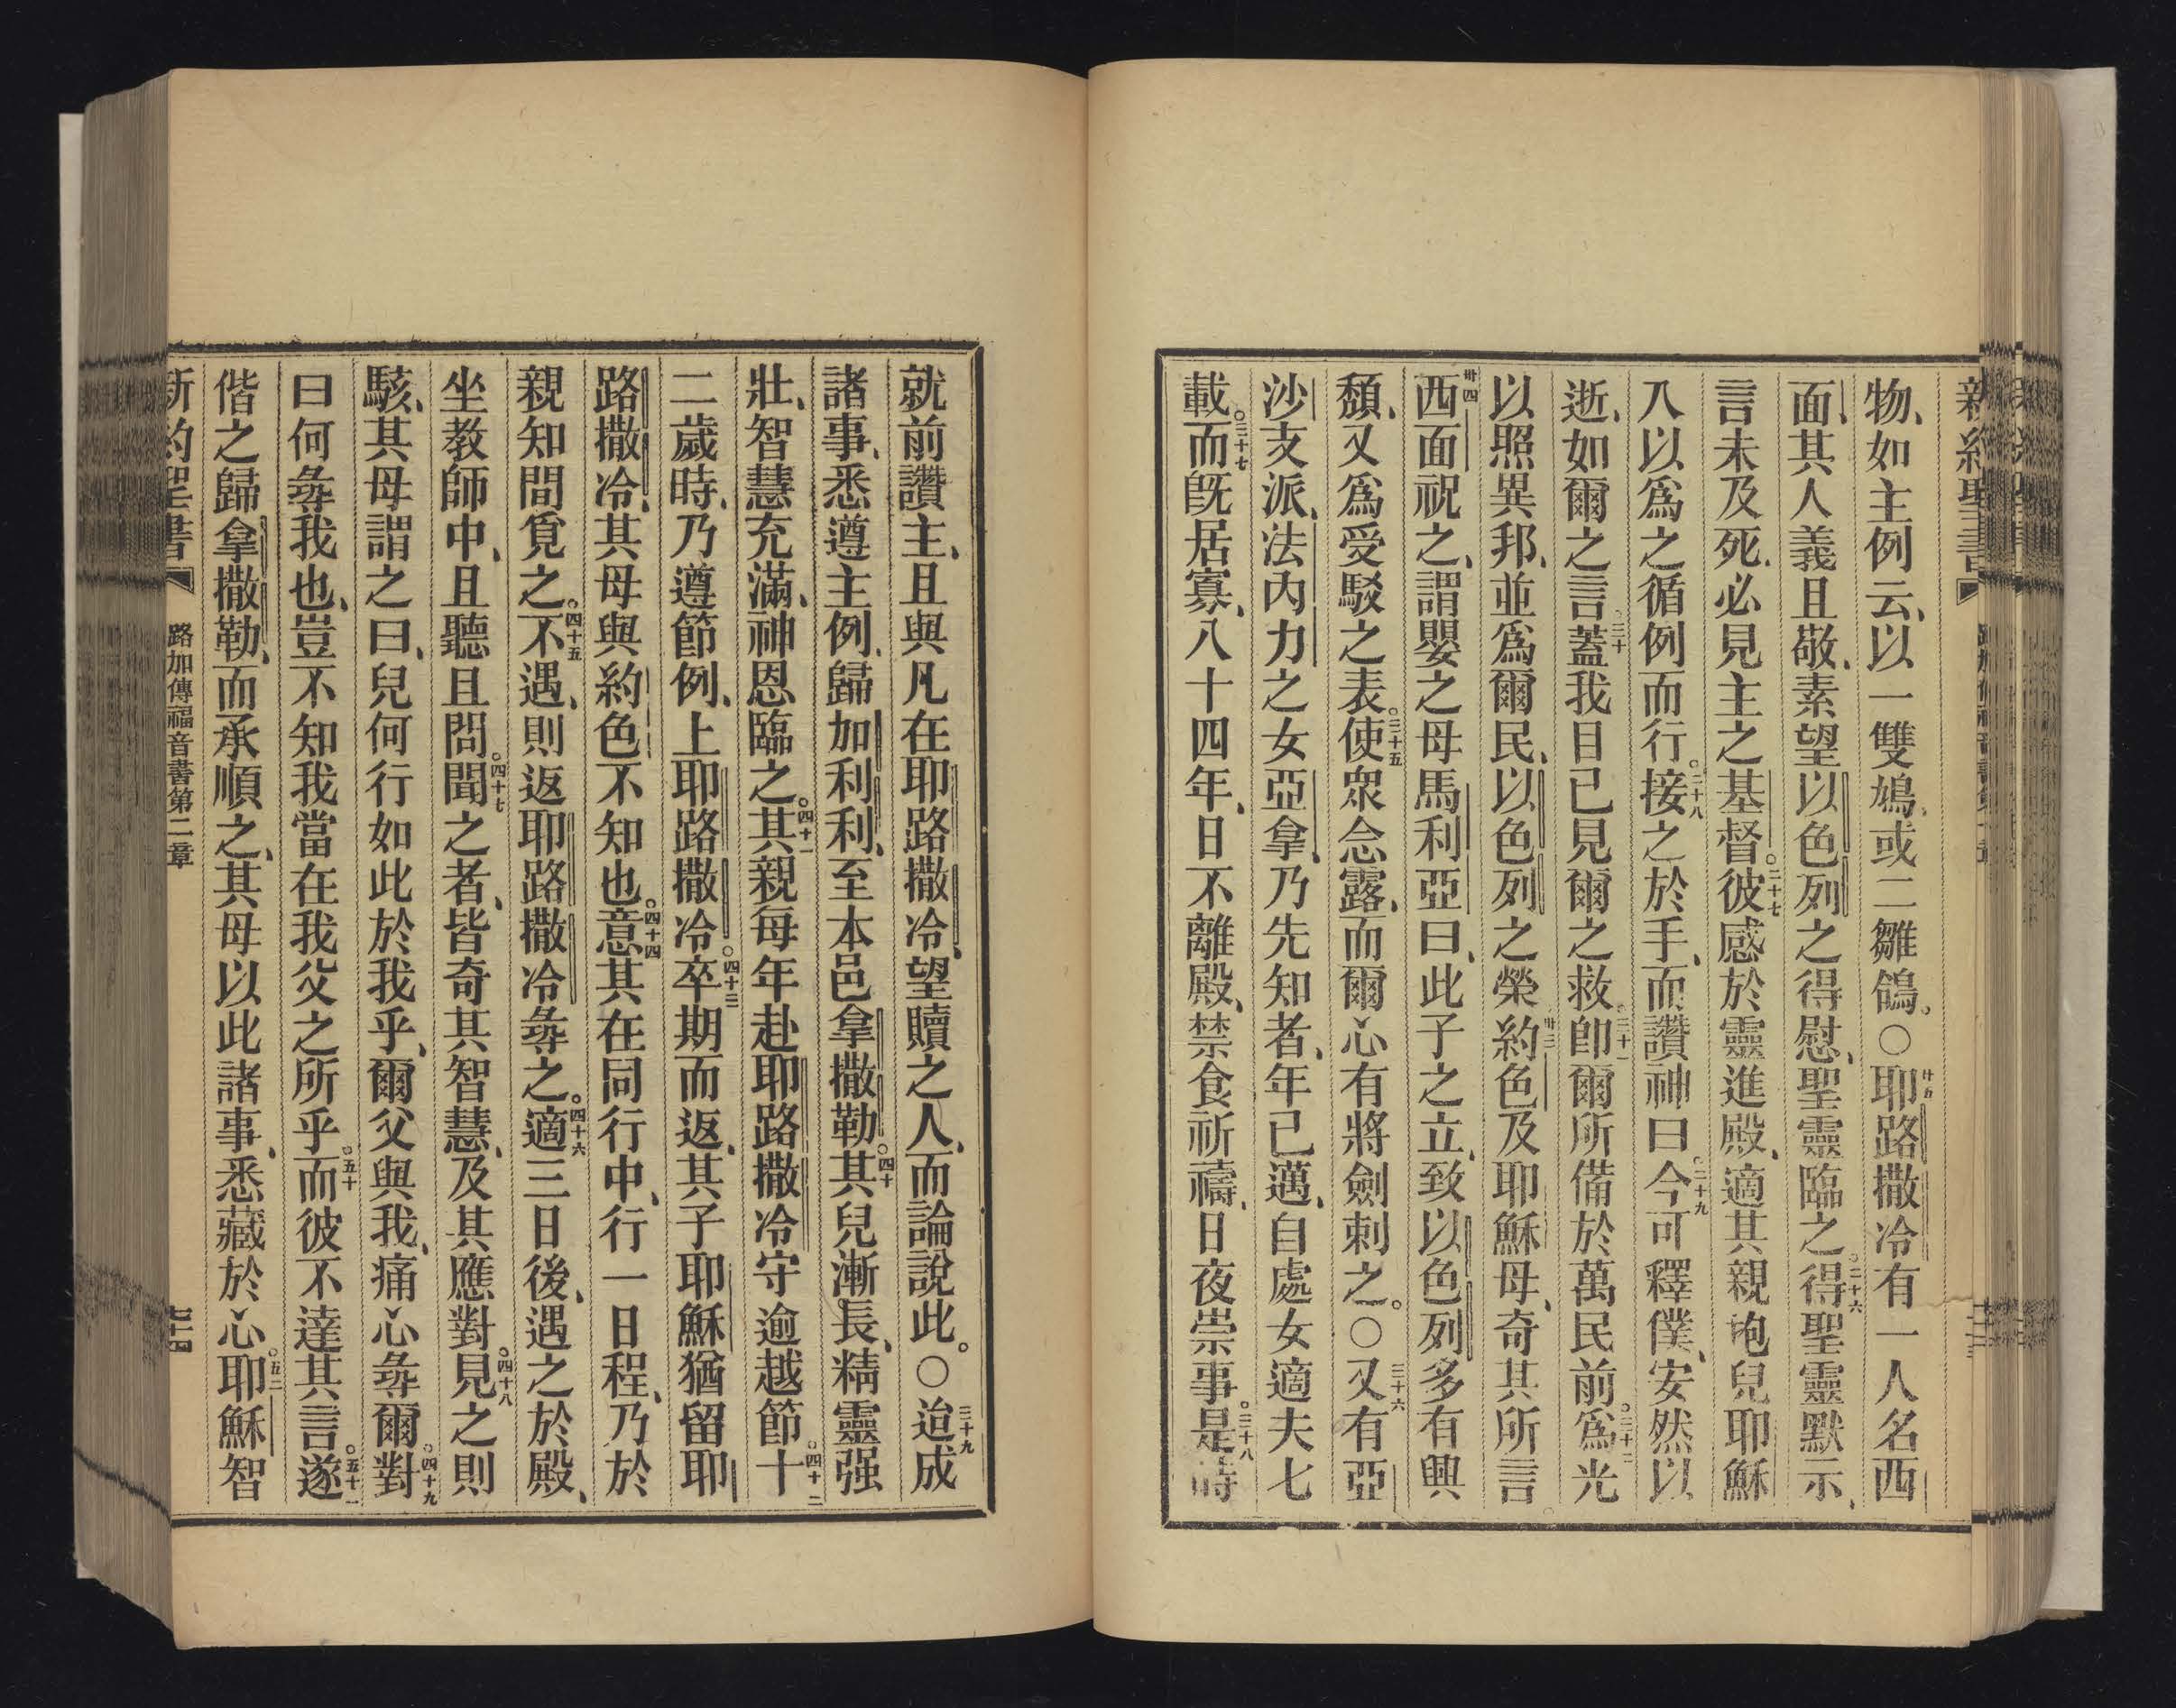 新約聖書
物、如主例云、以一雙鳩、或二雛鴿。○廿五耶路撒冷有一人名西
面、其人義且敬、素望以色列之得慰、聖靈臨之。二十六得聖靈默示、
言未及死、必見主之基督。二十七彼感於靈進殿、適其親抱兒耶穌
入以爲之循例而行。二十八接之於手、而讚神曰。二十九今可釋僕、安然以
逝、如爾之言。三十蓋我目已見爾之救。三十一卽爾所備於萬民前。三十二爲光
以照異邦、並爲爾民、以色列之榮。卅三約色及耶穌母、奇其所言。
卅四西面祝之、謂嬰之母馬利亞曰、此子之立、致以色列多有興
頽、又爲受駁之表。三十五使衆念露、而爾心有將劍刺之。○三十六又有亞
沙支派、法內力之女亞拿、乃先知者、年已邁、自處女適夫七
載。三十七而旣居寡、八十四年、日不離殿、禁食祈禱、日夜崇事。三十八是時
就前讚主、且與凡在耶路撒冷、望贖之人、而論說此。○三十九迨成
諸事、悉遵主例、歸加利利、至本邑拿撒勒。四十其兒漸長、精靈强
壯、智慧充滿、神恩臨之。四十一其親每年赴耶路撒冷守逾越節。四十二十
二歲時、乃遵節例、上耶路撒冷。四十三卒期而返、其子耶穌猶留耶
路撒冷、其母與約色不知也。四十四意其在同行中、行一日程、乃於
親知間覓之。四十五不遇、則返耶路撒冷尋之。四十六適三日後、遇之於殿、
坐教師中、且聽且問。四十七聞之者、皆奇其智慧、及其應對。四十八見之則
駭、其母謂之曰、兒何行如此於我乎、爾父與我、痛心尋爾。四十九對
曰何尋我也、豈不知我當在我父之所乎。五十而彼不達其言。五十一遂
偕之歸拿撒勒、而承順之、其母以此諸事、悉藏於心。五二耶穌智
新約聖書 路加傳福音書第二章 七十四